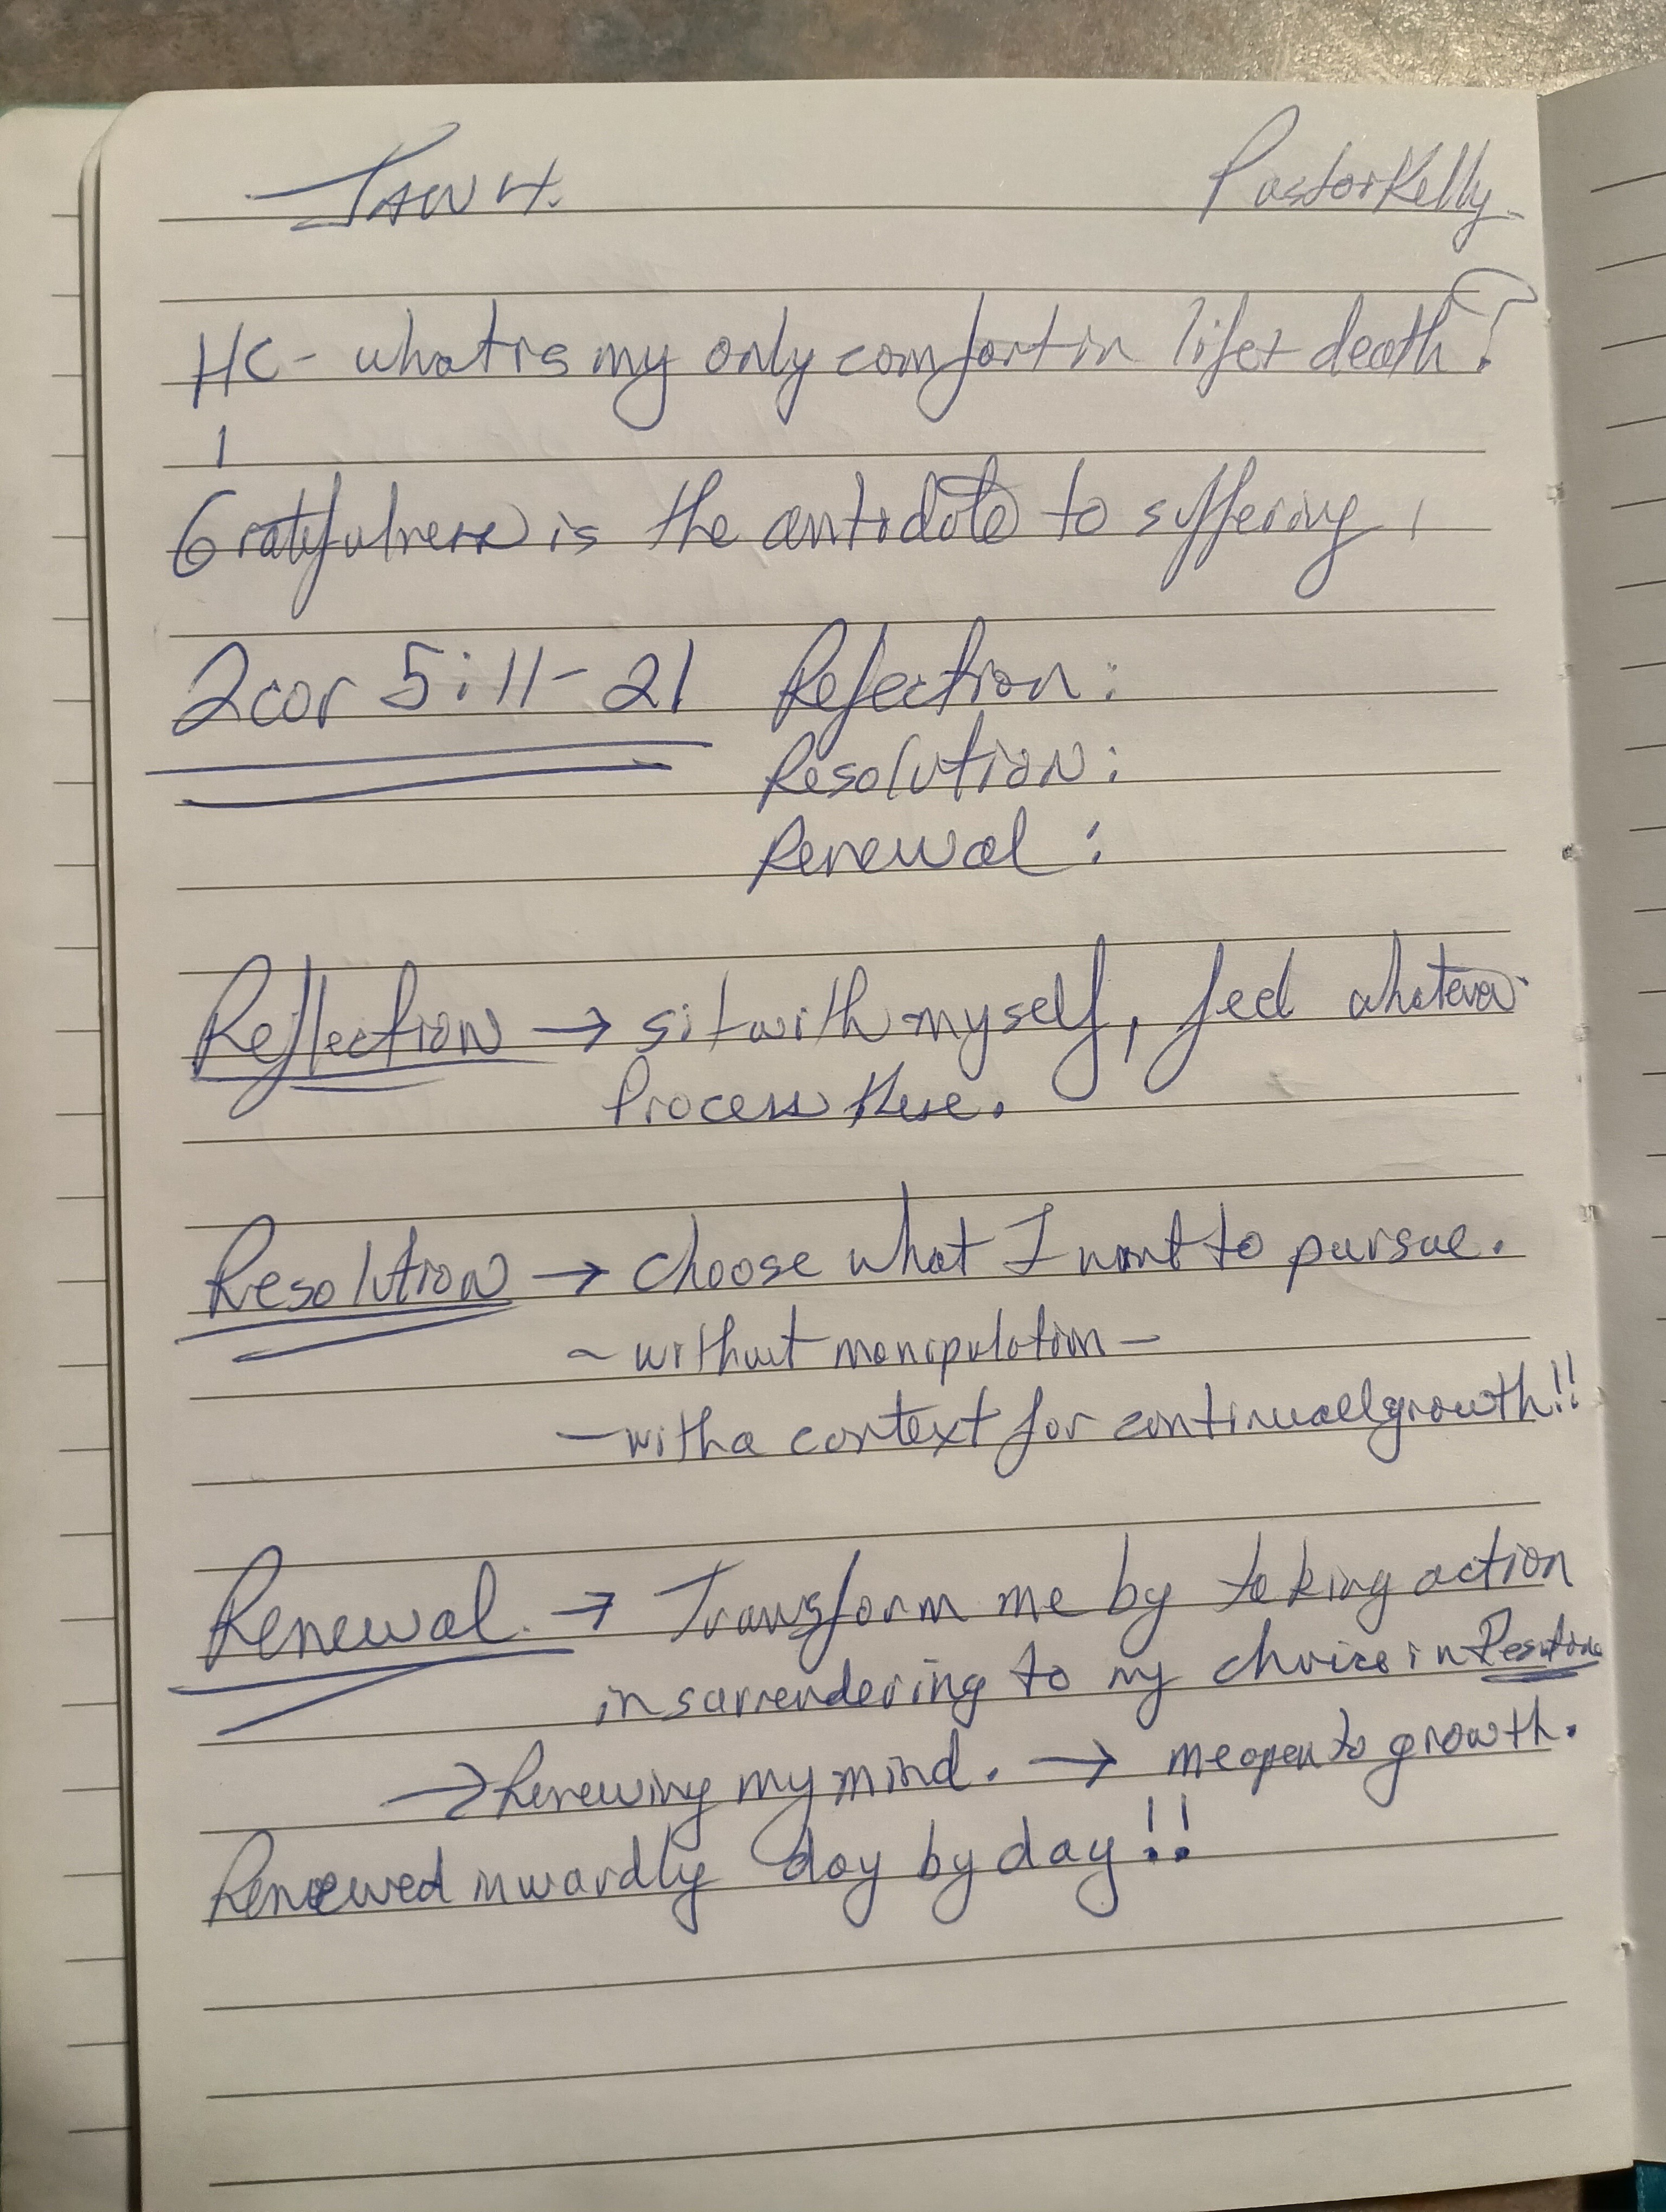 JAN 4. Pastor Kelly
HC - what is my only comfort in life + death?
1
Gratefulness is the antidote to suffering,
2cor 5:11-21 Reflection:
Resolution:
Renewal:
Reflection → sit with myself, feel whatever
Process there.
Resolution → choose what I want to pursue.
- without manipulation -
- with a context for continuall growth!!
Renewal. → Transform me by taking action
in surrendering to my choice in
→ Renewing my mind. → me open to growth.
Renewed inwardly day by day!!